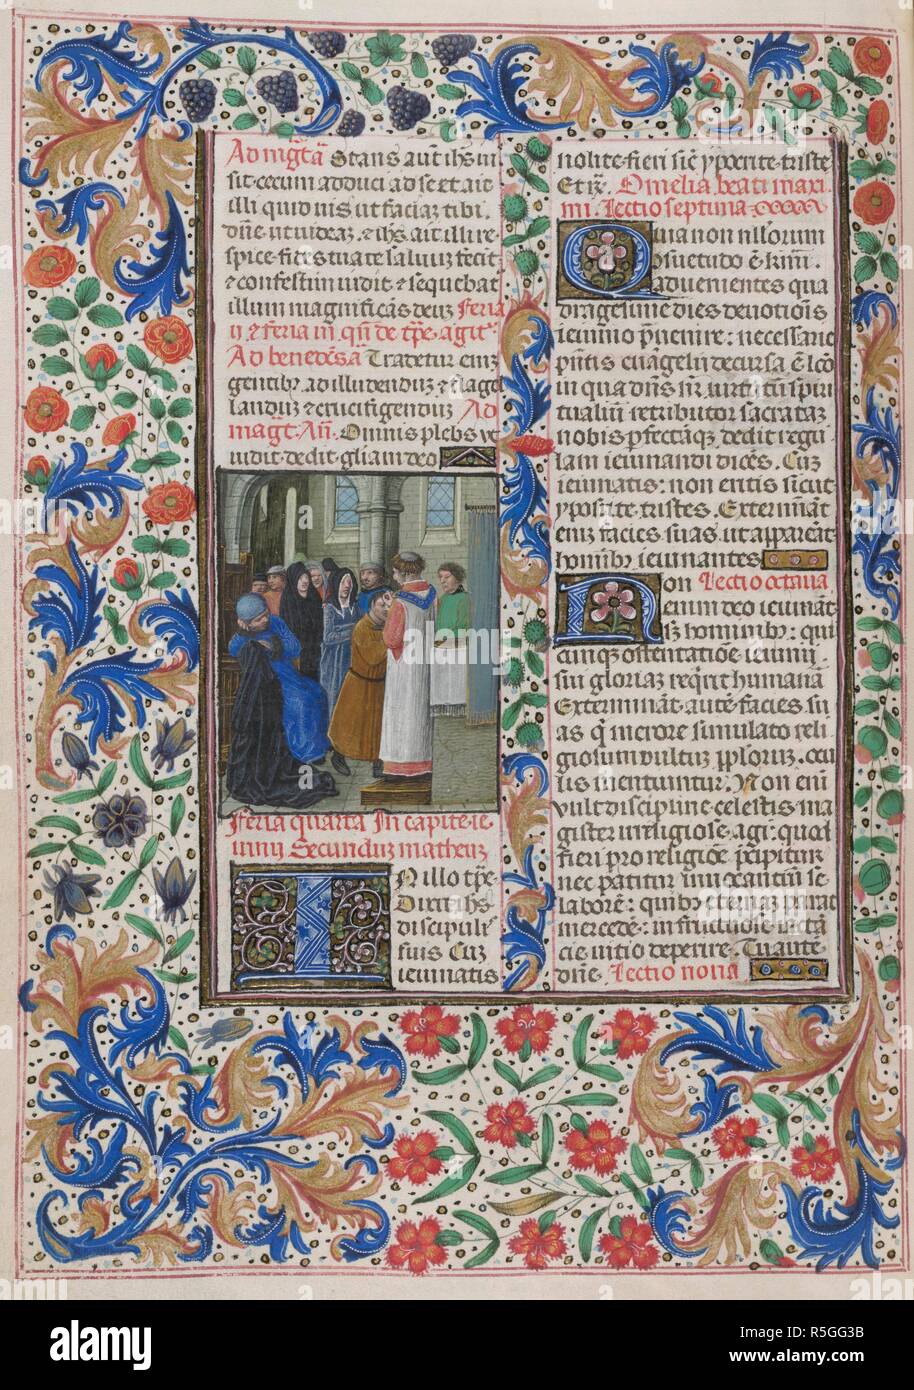 Ad mag̅t̅a̅ Stans aut̅ ih̅s iu
sit cecum adduci ad se et ait
illi quid uis ut faciaz tibi.
dn̅e ut uideaz. ⁊ ih̅s ait illi re
spice fides tua te saluuz fecit
⁊ confestim uidit ⁊ sequebat̅
illum magnifica̅s deuz Feria
ii ⁊ feria iii qn̅ de tp̅e agit̅
Ad bened̅c̅s a̅ Tradetur eni̅z
gentib; ad illudenduz ⁊ flagel
landuz ⁊ crucifigenduz Ad
mag̅t. An̅. Omnis plebs ut
uidit dedit gl̅iam deo
Feria quarta In capite ie
iunij Secunduz matheuz
In illo tp̅e
Dixit ih̅s
discipuli̅s
suis Cuz
ieiunatis
nolite fieri sic̅ ypocrite triste̅s
Et r̅z. Omelia beati maxi
mi. Lectio septima
Quia non nisorum
consuetudo e̅
aduenientes qua
dragesime dies deuotio̅is
ieiunio p̅uenire: necessario
pn̅tis eu̅angelij decursa e̅ lc̅o
in qua dn̅s nr̅ uirtutu̅ spiri
tualiu̅ retributor sacrataz
nobis p̅fectaq̅z dedit regu
lam ieiunandi dice̅s. Cuz
ieiunatis: non eritis sicut
ypocrite tristes. Extermina̅t
eni̅z facies suas ut appareant
ho̅m̅ib; ieiunantes
Non Lectio octaua
enim deo ieiuna̅t
s̅z hominib;: qui
cunq̅z ostentatio̅e ieiunij
sui gloriaz req̅rit humana̅
Exterminat aute̅ facies su
as q̅ merore simulato reli
giosum uultuz pp̅lorum ocu
lis mentiuntur. Non eni̅
uult discipline celestis ma
gister ut religiose agi: quos
fieri pro religio̅e p̅cipitur
nec patitur innocantiu̅ se
labore̅: quib; eternaz parat
mercede̅: in fructuose iacta̅
cie uitio deperire. Tu aute̅
dn̅e. Lectio nona
alamy
Image ID: R5GG3B
www.alamy.com